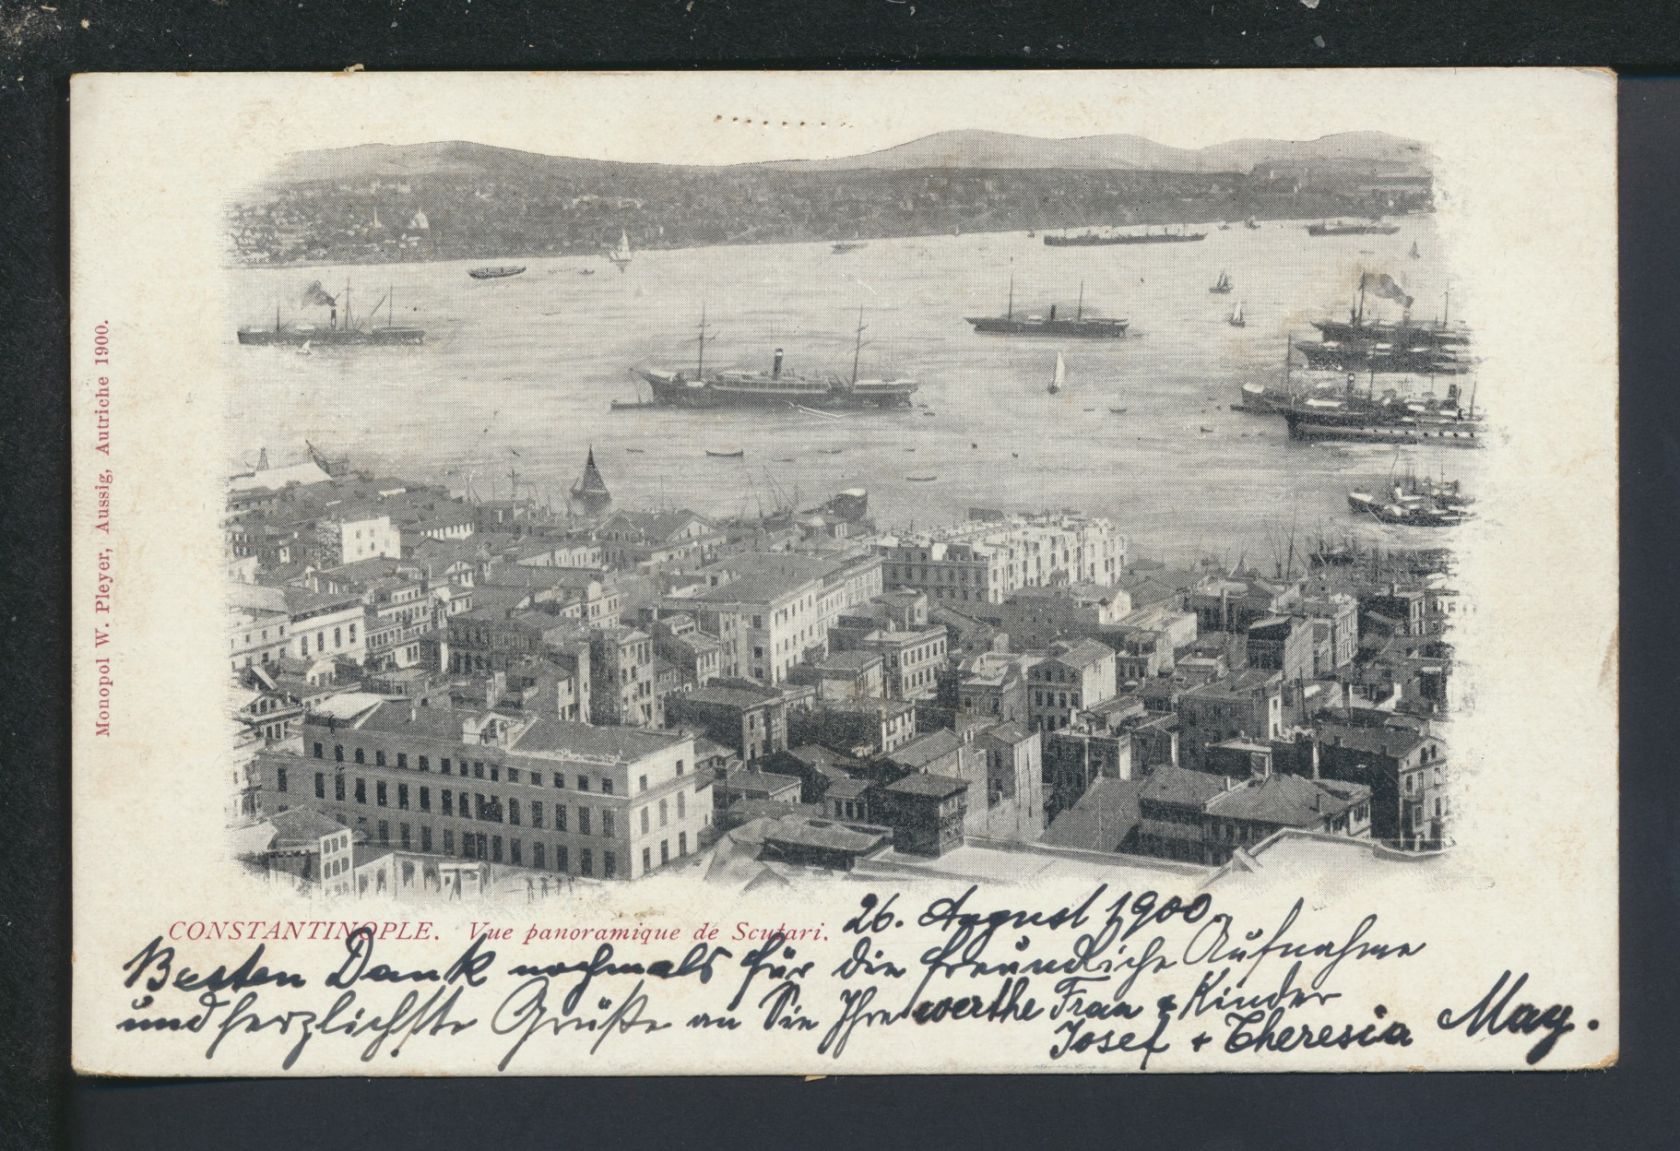 Monopol W. Pleyer, Aussig, Autriche 1900.
CONSTANTINOPLE. Vue panoramique de Scutari.
26. August 1900
Besten Dank nochmals für die freundliche Aufnahme
und herzlichste Grüße an Sie Ihre werthe Frau & Kinder
Josef + Theresia May.